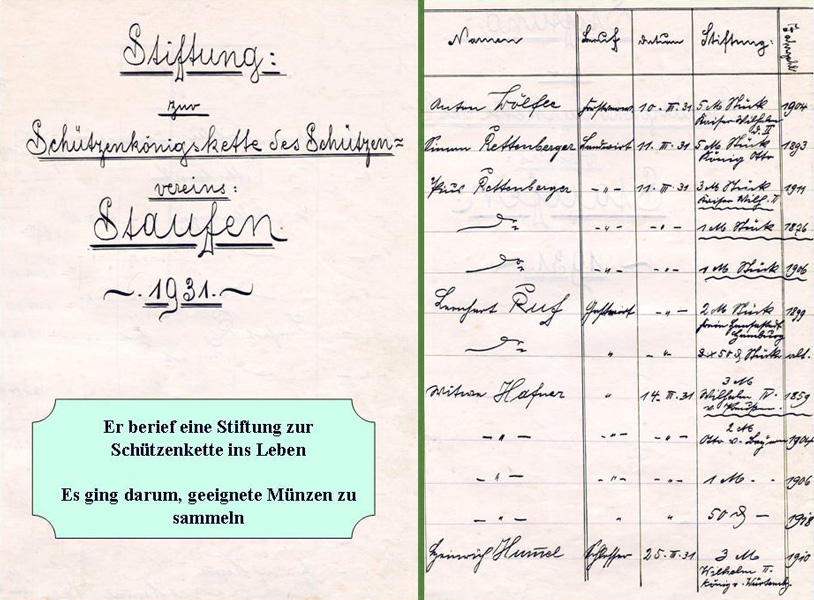 Stiftung:
zur
Schützenkönigskette des Schützen=
vereins:
Staufen.
~. 1931. ~
Er berief eine Stiftung zur
Schützenkette ins Leben
Es ging darum, geeignete Münzen zu
sammeln
Namen Beruf Datum Stiftung:
Anton Wölfle 10. III. 31 5 M Stück 1904
Kaiser Wilhelm
d. II
Simon Rettenberger Landwirt 11. III. 31 5 M Stück 1893
König Otto
Pius Rettenberger -"- 11. III. 31 3 M Stück 1911
Kaiser Wilh. II
do -"- -"- 1 M Stück 1826
do -"- -"- 1 M Stück 1906
Lenhart Ruf Gastwirt -"- 2 M Stück 1899
Hamburg
do " -"- 2 x 50 ₰ Stück alt.
Witwe Hafner " 14. III. 31 3 M 1859
Wilhelm IV.
v. Preußen.
-"- -"- -"- 2 M
Otto v. Bayern 1904
-"- -"- -"- 1 M - 1906
-"- " " 50 ₰ - 1918
Heinrich Hummel Schlosser 25. III. 31 3 M 1910
Wilhelm II.
König v. Württembg.